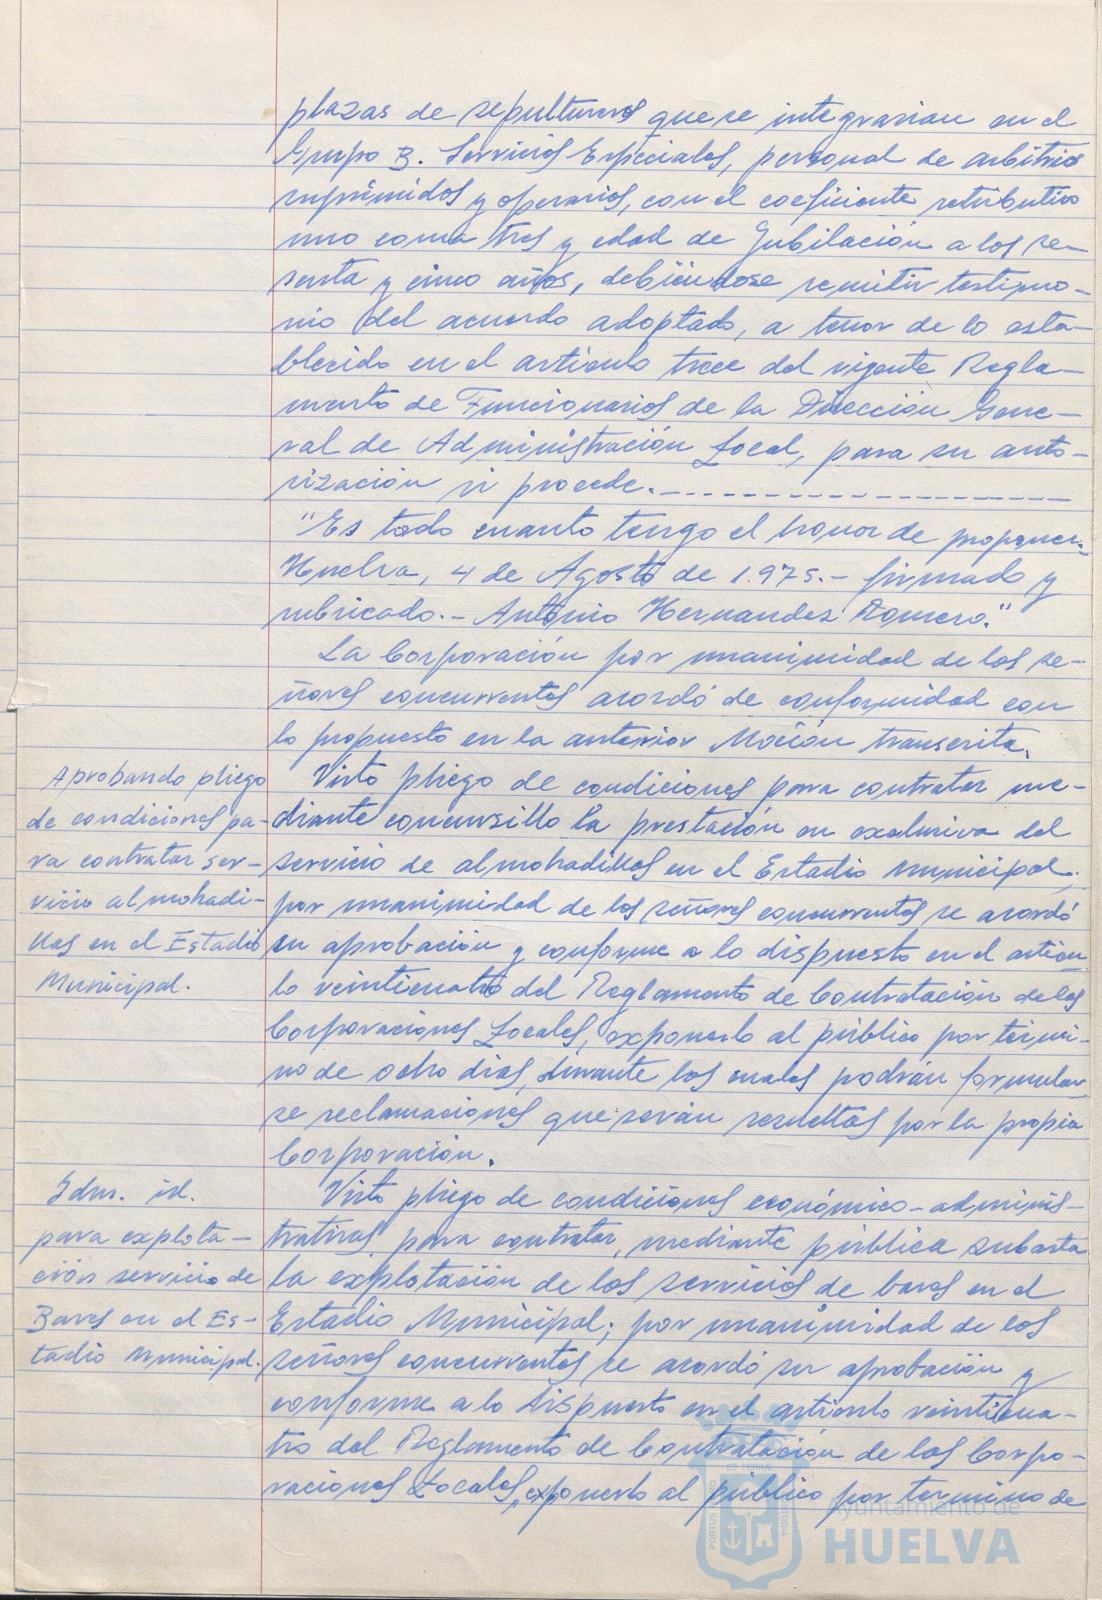 plazas de sepultureros que se integrarian en el
Grupo B. Servicios Especiales, personal de arbitrios
suprimidos y operarios, con el coeficiente retributivo
uno coma tres y edad de Jubilación a los se-
senta y cinco años, debiéndose remitir testimo-
nio del acuerdo adoptado, a tenor de lo esta-
blecido en el articulo trece del vigente Regla-
mento de Funcionarios de la Dirección Gene-
ral de Administración Local, para su auto-
rización si procede.
"Es todo cuanto tengo el honor de proponer.
Huelva, 4 de Agosto de 1.975.- firmado y
rubricado.- Antonio Hernandez Romero."
La Corporación por unanimidad de los se-
ñores concurrentes acordó de conformidad con
lo propuesto en la anterior Moción transcrita.
Aprobando pliego
de condiciones pa-
ra contratar ser-
vicio almohadi-
llas en el Estadio
Municipal.
Visto pliego de condiciones para contratar me-
diante concursillo la prestación en exclusiva del
servicio de almohadillas en el Estadio Municipal;
por unanimidad de los señores concurrentes se acordó
su aprobación y conforme a lo dispuesto en el articu
lo veinticuatro del Reglamento de Contratación de las
Corporaciones Locales, exponerlo al público por térmi-
no de ocho dias, durante los cuales podrán formular
se reclamaciones que serán resueltas por la propia
Corporación.
Idm. id.
para explota-
ción servicio de
Bares en el Es-
tadio Municipal.
Visto pliego de condiciones económico-adminis-
trativas para contratar, mediante pública subasta
la explotación de los servicios de bares en el
Estadio Municipal; por unanimidad de los
señores concurrentes se acordó su aprobación y
conforme a lo dispuesto en el articulo veinticua-
tro del Reglamento de Contratación de las Corpo-
raciones Locales, exponerlo al público por termino de
Ayuntamiento de
HUELVA